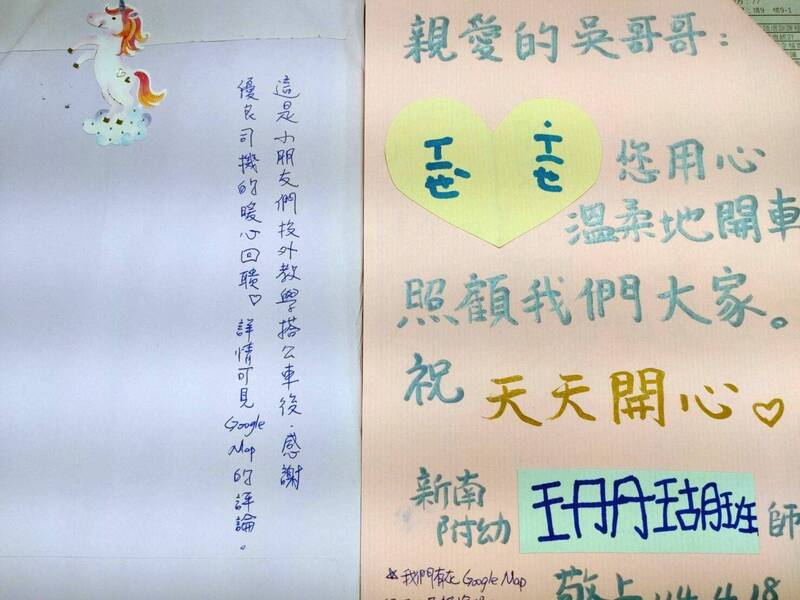 這是小朋友們校外教學搭公車後,感謝
優良司機的暖心回饋♡詳情可見Google Map的評論。
親愛的吳哥哥:
ㄒㄧㄝˋ ˙ㄒㄧㄝ 您用心
溫柔地開車
照顧我們大家。
祝 天天開心♡
新南
附幼 珊丹丹瑚班 師
敬上
☆我們有在 Google Map